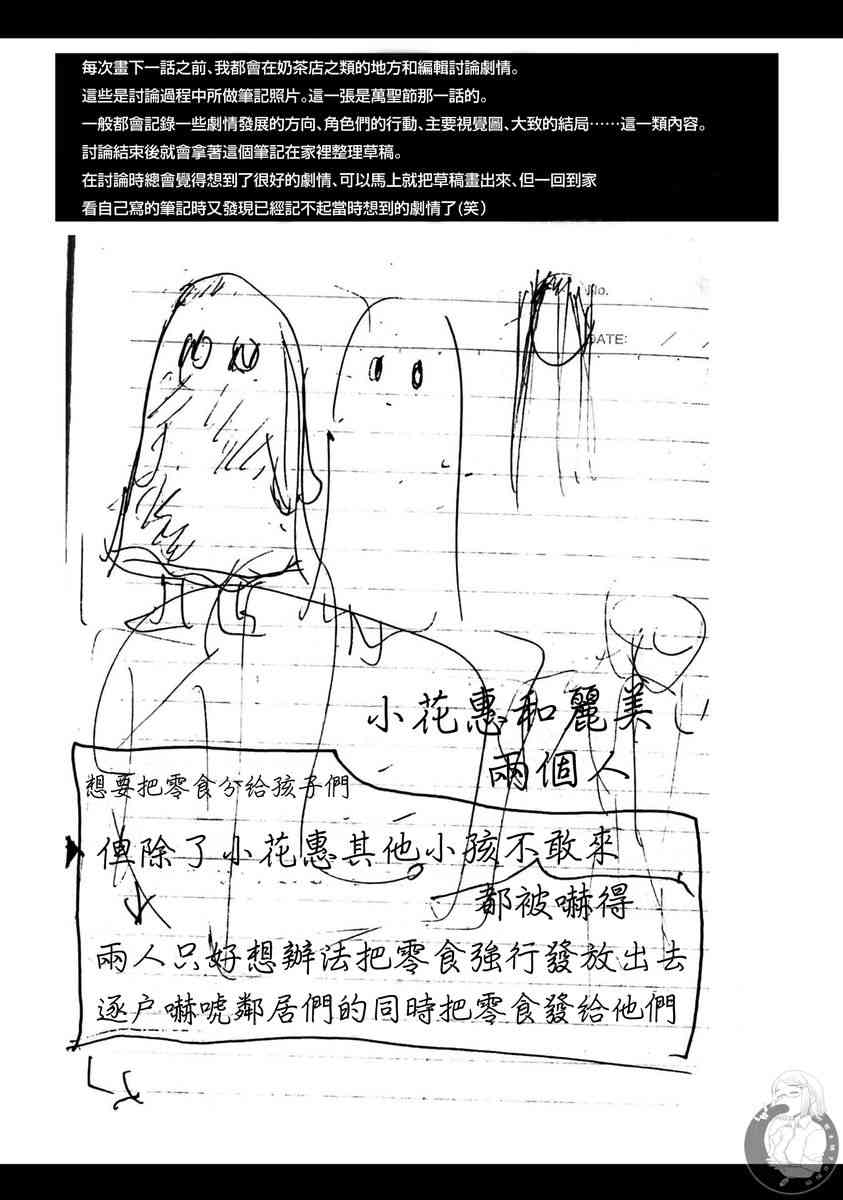 每次畫下一話之前、我都會在奶茶店之類的地方和編輯討論劇情。
這些是討論過程中所做筆記照片。這一張是萬聖節那一話的。
一般都會記錄一些劇情發展的方向、角色們的行動、主要視覺圖、大致的結局……這一類內容。
討論結束後就會拿著這個筆記在家裡整理草稿。
在討論時總會覺得想到了很好的劇情、可以馬上就把草稿畫出來、但一回到家
看自己寫的筆記時又發現已經記不起當時想到的劇情了(笑)
No.
DATE: / /
小花惠和麗美
兩個人
想要把零食分給孩子們
但除了小花惠其他小孩不敢來
都被嚇得
兩人只好想辦法把零食強行發放出去
逐户嚇唬鄰居們的同時把零食發給他們